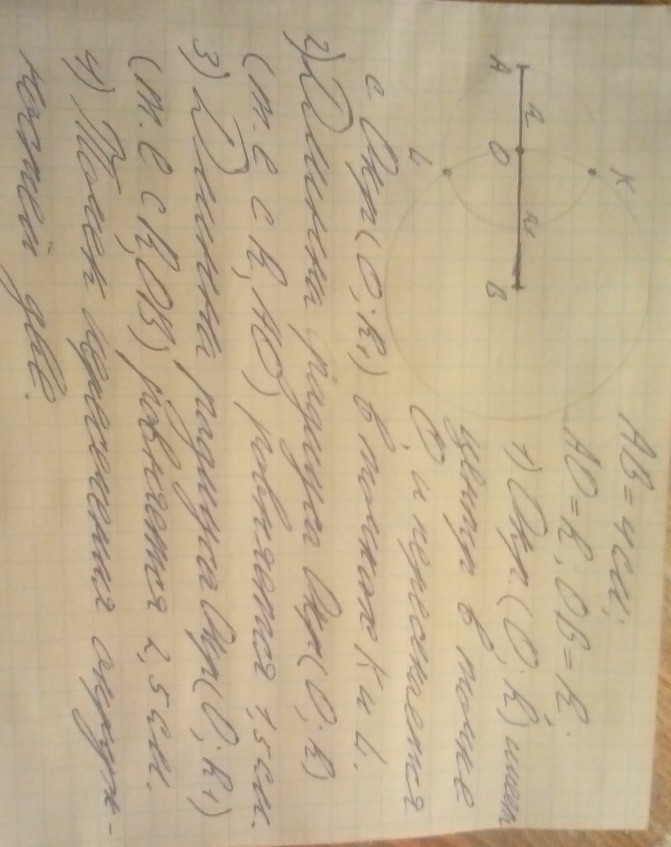 K
A R O R B
L
AB = 4 см;
AO = R; OB = R;
1) Окр. (O; R) имеет
центр в точке
O и пересекается
с Окр (O; R1) в точках K и L.
2) Длинна радиуса Окр (O; R)
(т.е с R, AO) ровняется 1,5 см.
3) Длинна радиуса Окр (O; R1)
(т.е с R, OB) ровняется 2,5 см.
4) Точек пересечения окруж-
ностей две.